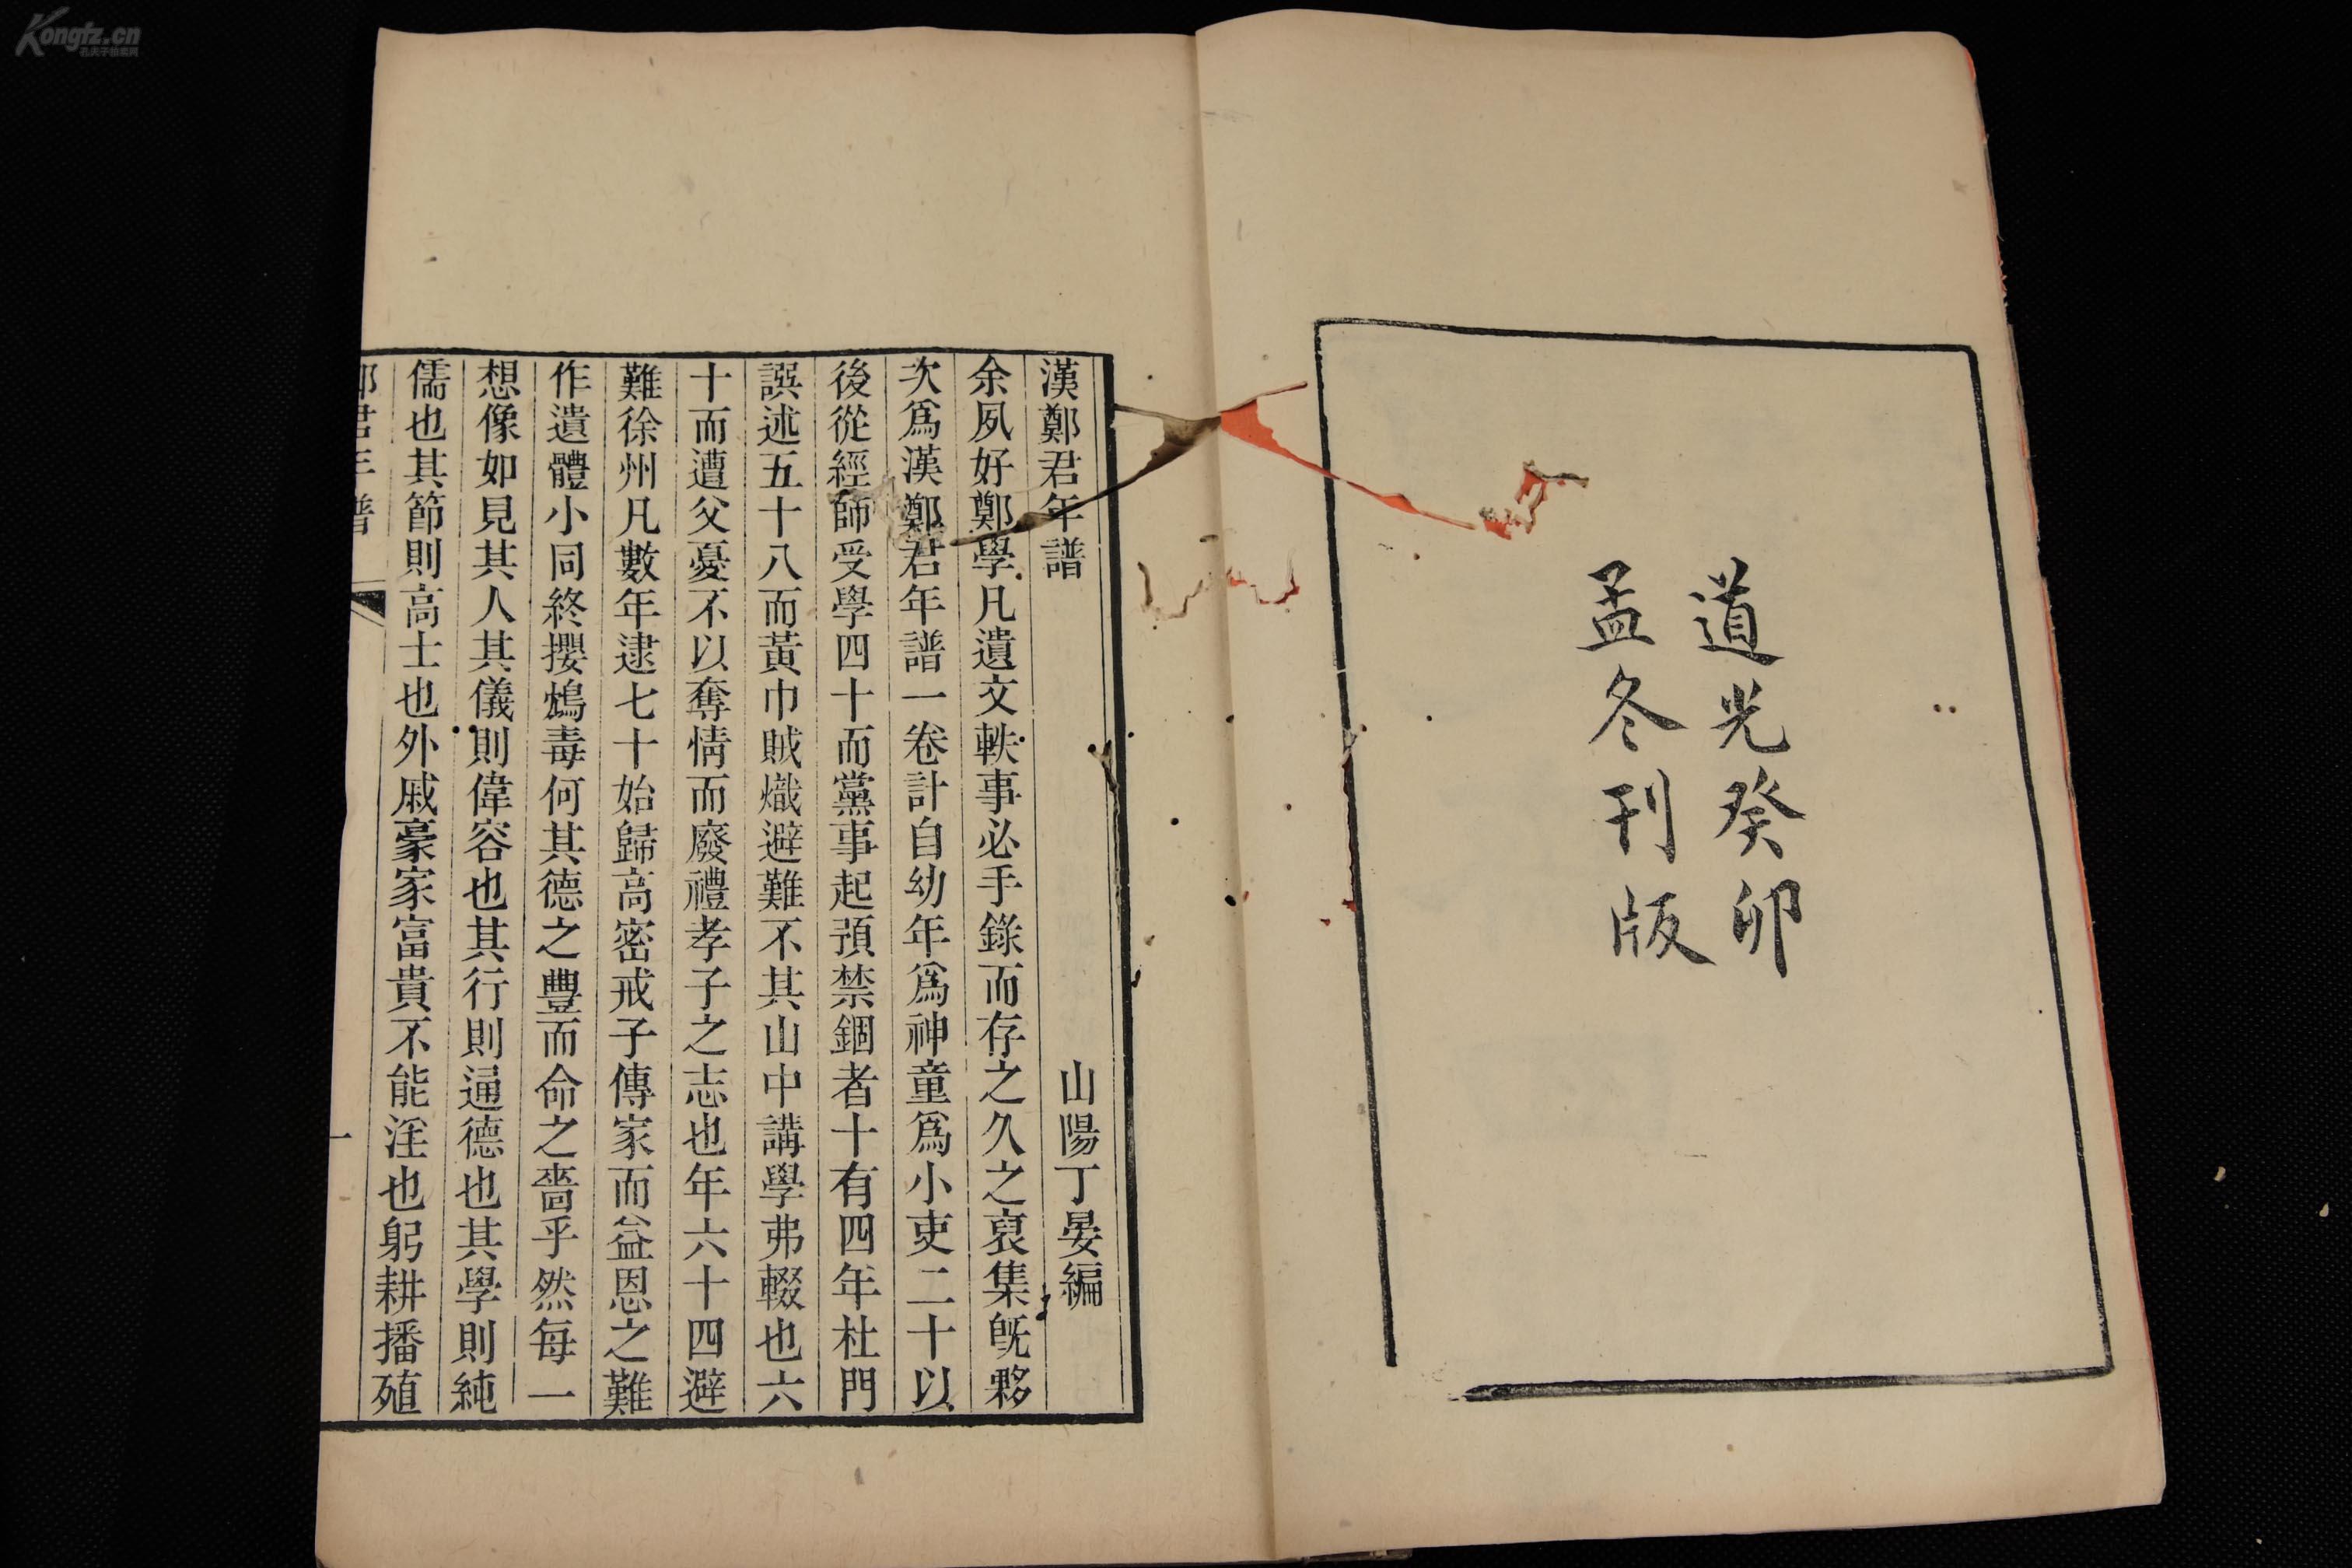 道光癸卯
孟冬刊版
漢鄭君年譜
山陽丁晏編
余夙好鄭學凡遺文軼事必手錄而存之久之裒集旣夥
次爲漢鄭君年譜一卷計自幼年爲神童爲小吏二十以
後從經師受學四十而黨事起預禁錮者十有四年杜門
譔述五十八而黃巾賊熾避難不其山中講學弗輟也六
十而遭父憂不以奪情而廢禮孝子之志也年六十四避
難徐州凡數年逮七十始歸高密戒子傳家而益恩之難
作遺體小同終攖鴆毒何其德之豐而命之嗇乎然每一
想像如見其人其儀則偉容也其行則通德也其學則純
儒也其節則高士也外戚豪家富貴不能淫也躬耕播殖
一
Kongfz.cn